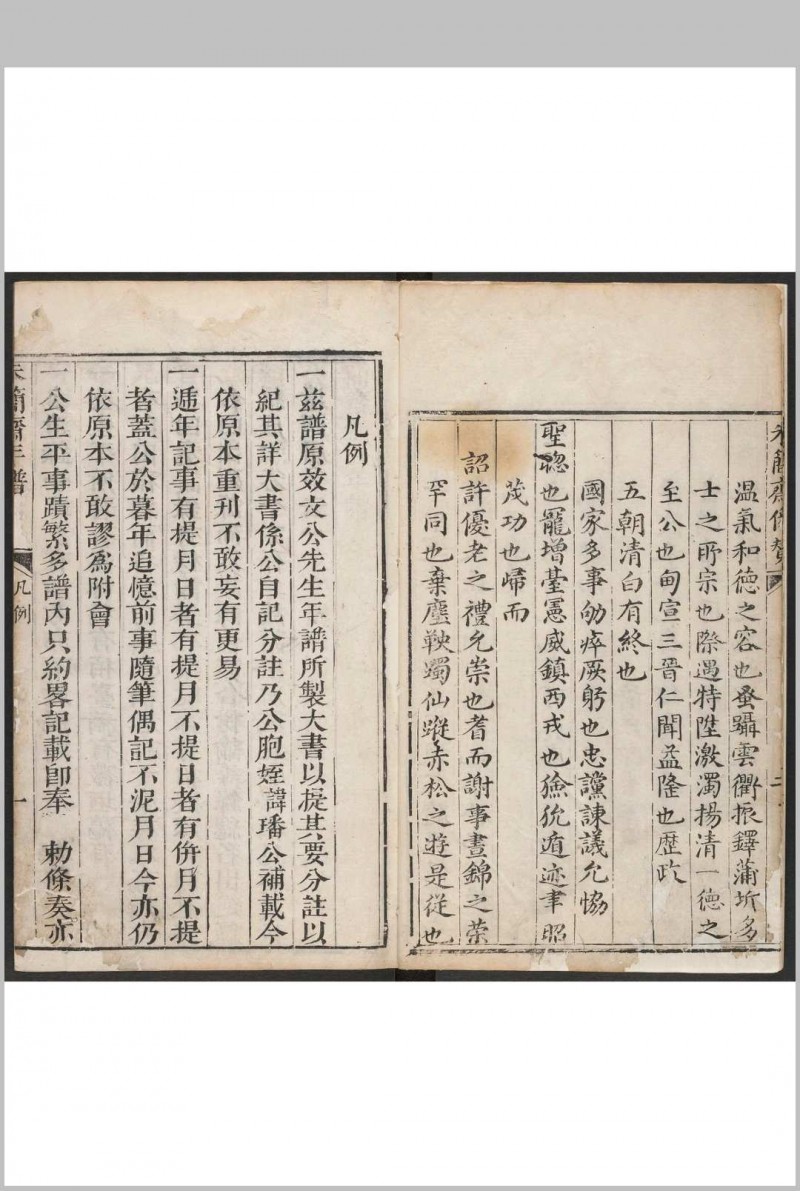 溫氣和德之容也蚤躡雲衢振鐸蒲圻多
士之所宗也際遇特陞激濁揚清一德之
至公也甸宣三晉仁聞益隆也歷政
五朝清白有終也
國家多事劬瘁厥躬也忠讜諫議允協
聖聰也寵增臺憲威鎮西戎也獫狁遁迹聿昭
茂功也歸而
詔許優老之禮允崇也耆而謝事晝錦之榮
罕同也棄塵鞅躅仙蹤赤松之遊是從也
凡例
一茲譜原效文公先生年譜所製大書以提其要分註以
紀其詳大書係公自記分註乃公胞姪諱璠公補載今
依原本重刊不敢妄有更易
一逓年記事有提月日者有提月不提日者有併月不提
者蓋公於暮年追憶前事隨筆偶記不泥月日今亦仍
依原本不敢謬爲附會
一公生平事蹟繁多譜內只約畧記載卽奉 勅條奏亦
簡齋年譜 凡例 一